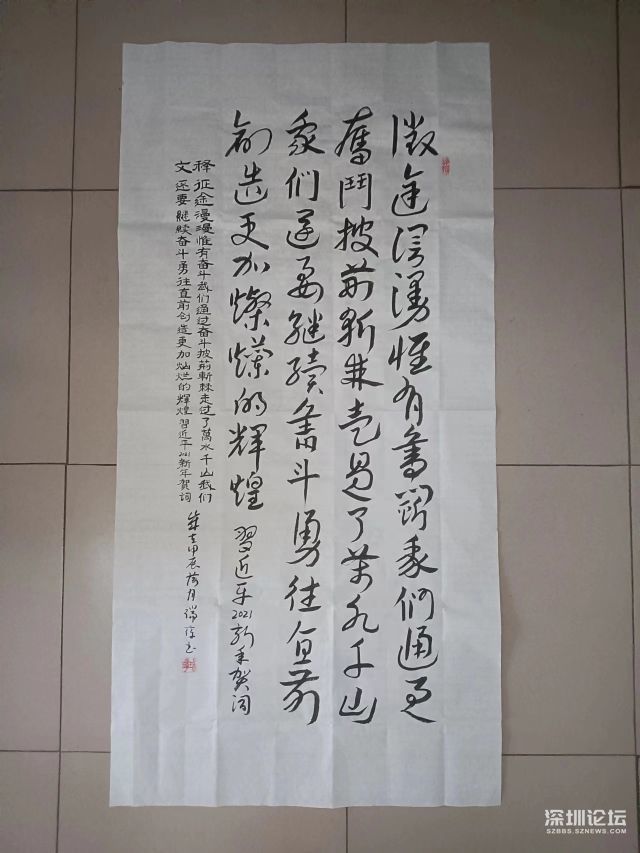 征途漫漫惟有奮鬥我们通过
奮鬥披荊斩棘走过了万水千山
我们还要继续奋斗勇往直前
创造更加燦烂的輝煌 習近平2021新年賀词
释 征途漫漫惟有奋斗我们通过奋斗披荊斬棘走过了萬水千山我们
文 还要継续奋斗勇往直前创造更加灿烂的輝煌 習近平2021新年賀词
歲在甲辰荷月
深圳论坛
SZBBS.SZNEWS.COM